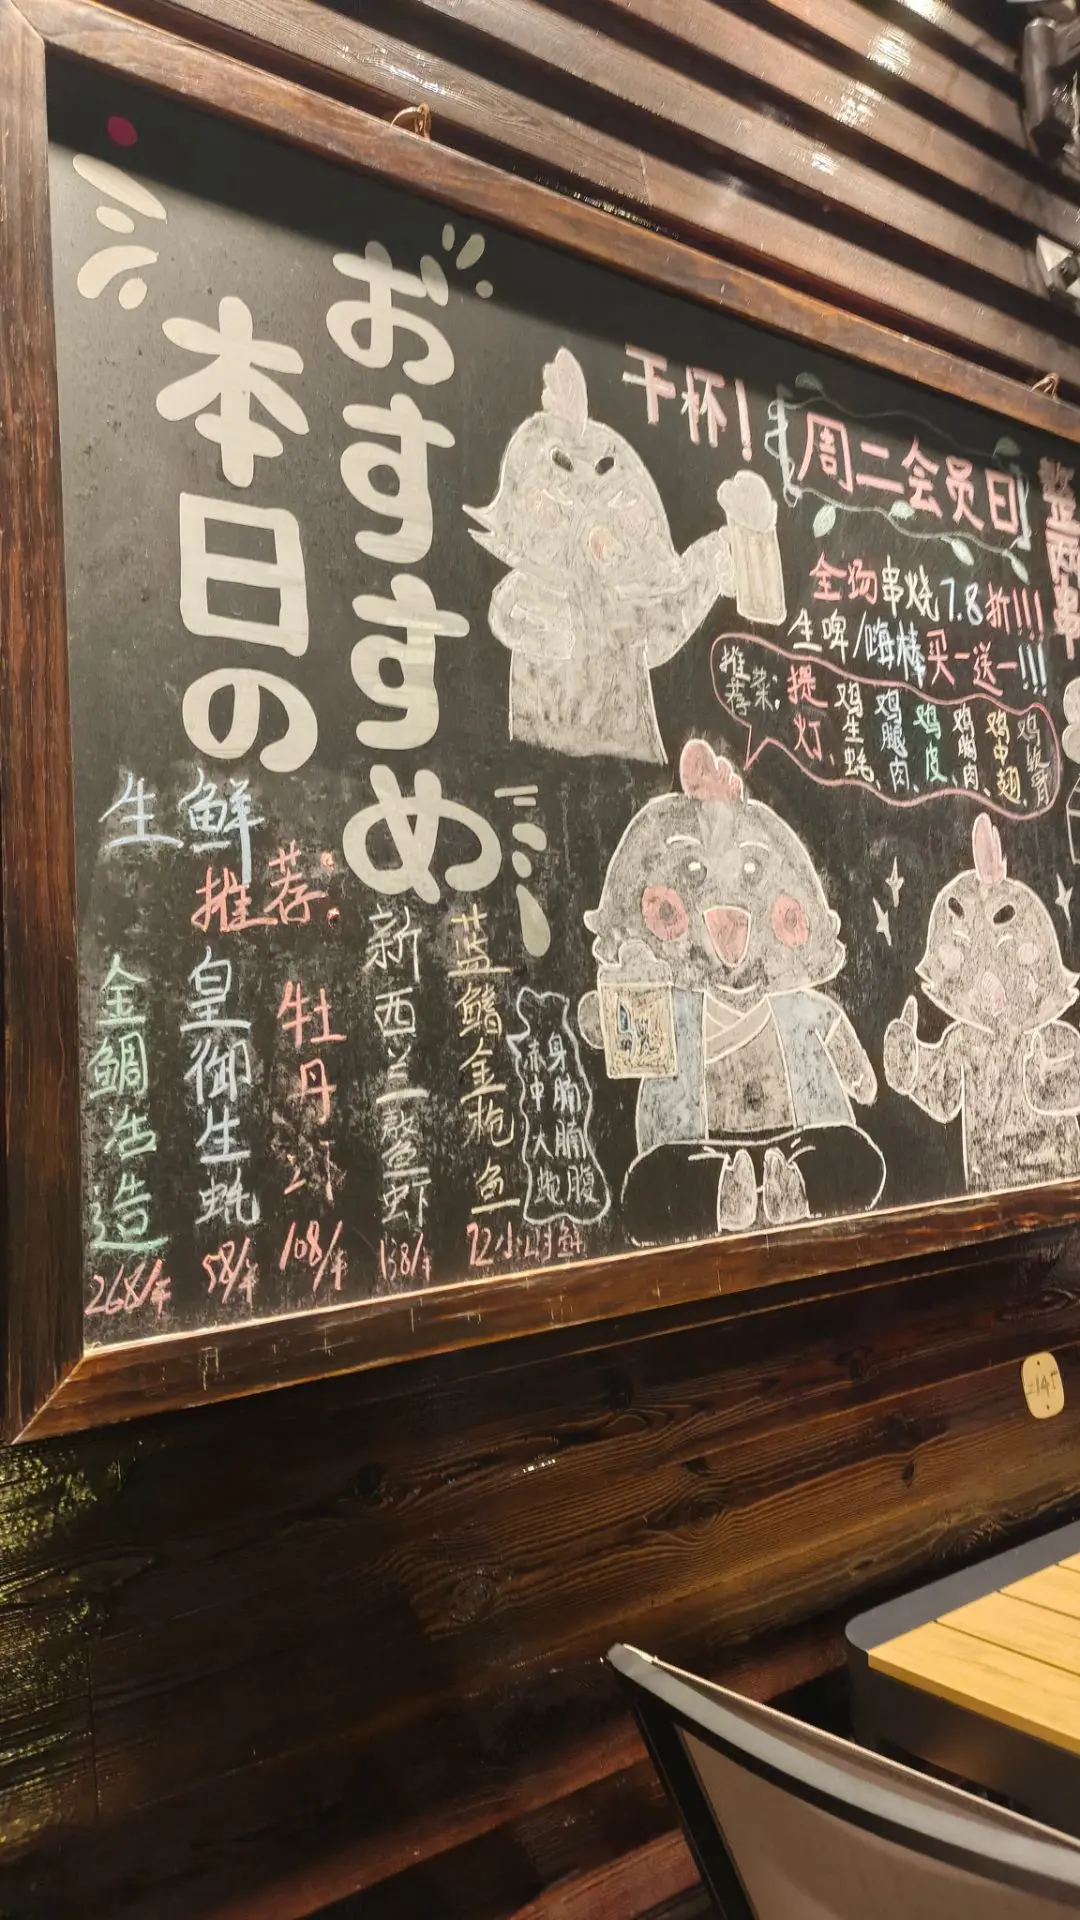 本日の
おすすめ
干杯!
周二会员日
全场串烧7.8折!!!
生啤/嗨棒买一送一!!!
推荐菜:
提灯、
鸡生蚝、
鸡腿肉、
鸡皮、
鸡胸肉、
鸡中翅、
鸡软骨
生鲜
推荐:
金鲷活造
268/条
皇御生蚝
58/
牡丹虾
108/
新西兰鳌鱼虾
158/
蓝鳍金枪鱼
赤身
中腩
大腩
腹
72